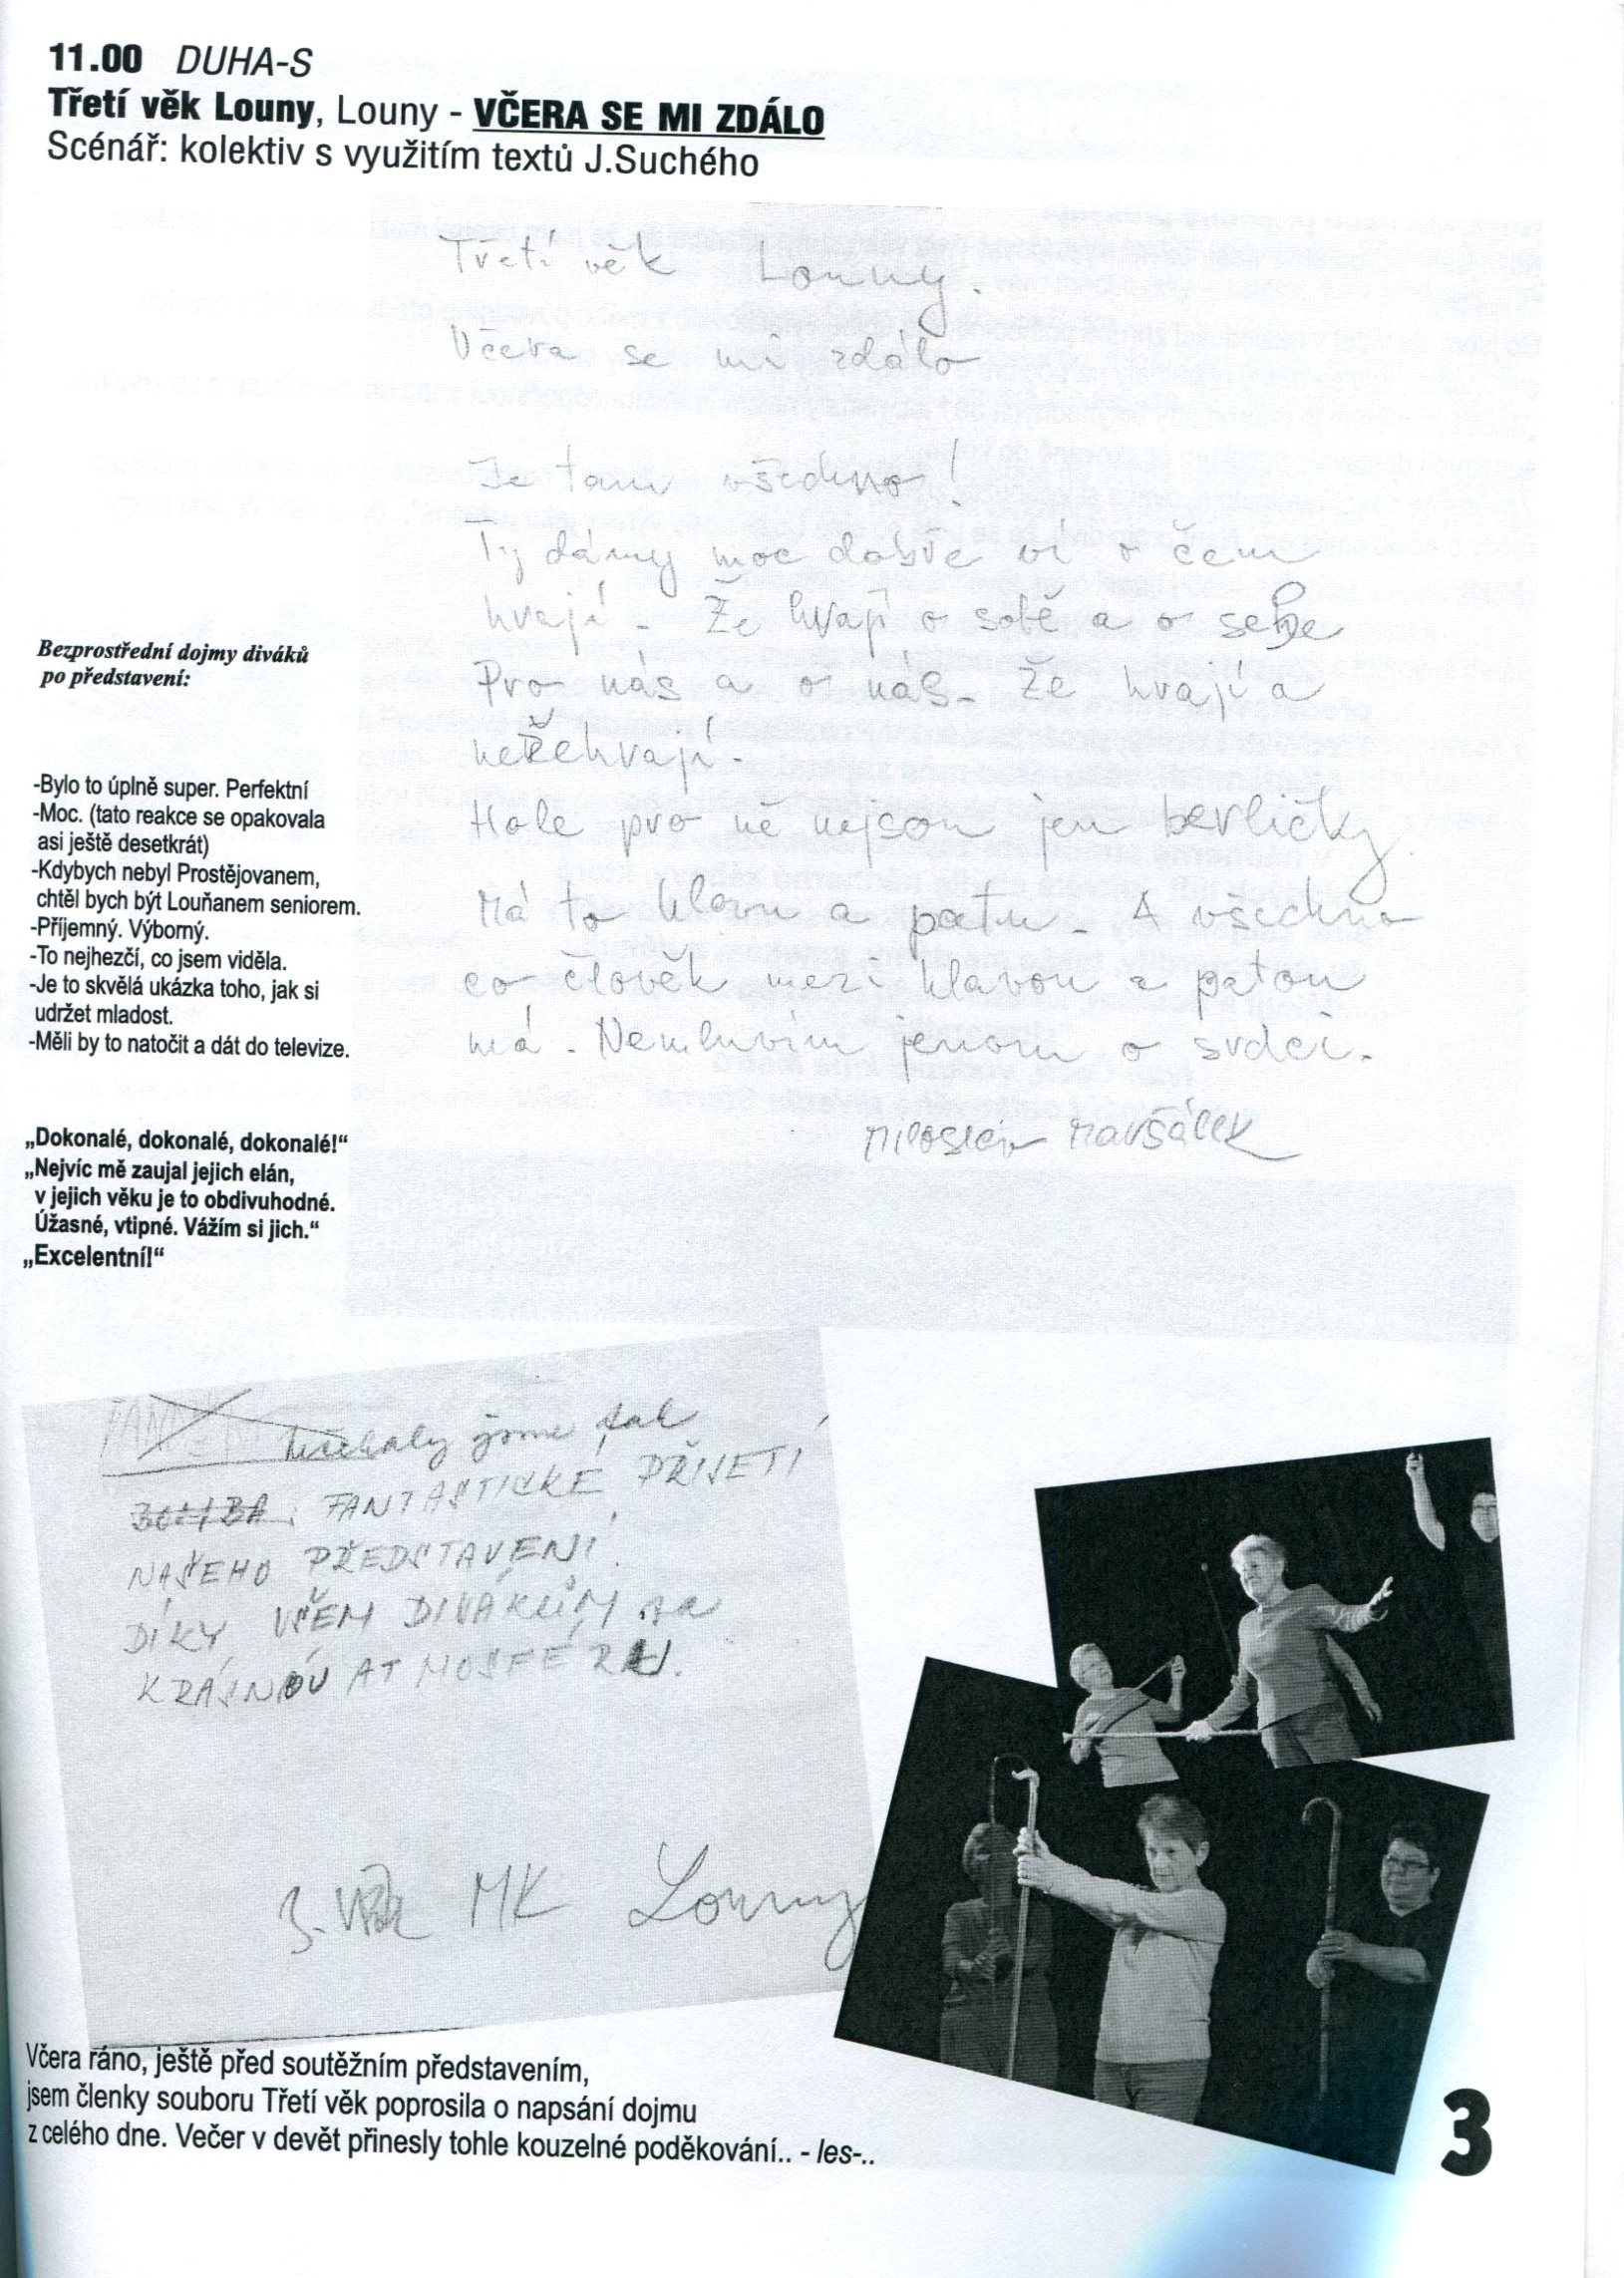 11.00 DUHA-S
Třetí věk Louny, Louny - VČERA SE MI ZDÁLO
Scénář: kolektiv s využitím textů J.Suchého
Třetí věk Louny.
Včera se mi zdálo
Je tam všechno!
Ty dámy moc dobře ví o čem
hrají - Že hrají o sobě a o sebe
Pro nás a o nás - Že hrají a
nepřehrají.
Hole pro ně nejsou jen berličky
Má to hlavu a patu - A všechno
co člověk mezi hlavou a patou
má - Nemluvím jenom o srdci.
Miloslav Maršálek
Bezprostřední dojmy diváků
po představení:
-Bylo to úplně super. Perfektní
-Moc. (tato reakce se opakovala
asi ještě desetkrát)
-Kdybych nebyl Prostějovanem,
chtěl bych být Louňanem seniorem.
-Příjemný. Výborný.
-To nejhezčí, co jsem viděla.
-Je to skvělá ukázka toho, jak si
udržet mladost.
-Měli by to natočit a dát do televize.
„Dokonalé, dokonalé, dokonalé!“
„Nejvíc mě zaujal jejich elán,
v jejich věku je to obdivuhodné.
Úžasné, vtipné. Vážím si jich.“
„Excelentní!“
jsme tak
FANTASTICKÉ PŘIJETÍ
NAŠEHO PŘEDSTAVENÍ.
DÍKY VŠEM DIVÁKŮM za
KRÁSNOU ATMOSFÉRU.
3. Věk MK Louny
Včera ráno, ještě před soutěžním představením,
jsem členky souboru Třetí věk poprosila o napsání dojmu
z celého dne. Večer v devět přinesly tohle kouzelné poděkování.. - les-..
3